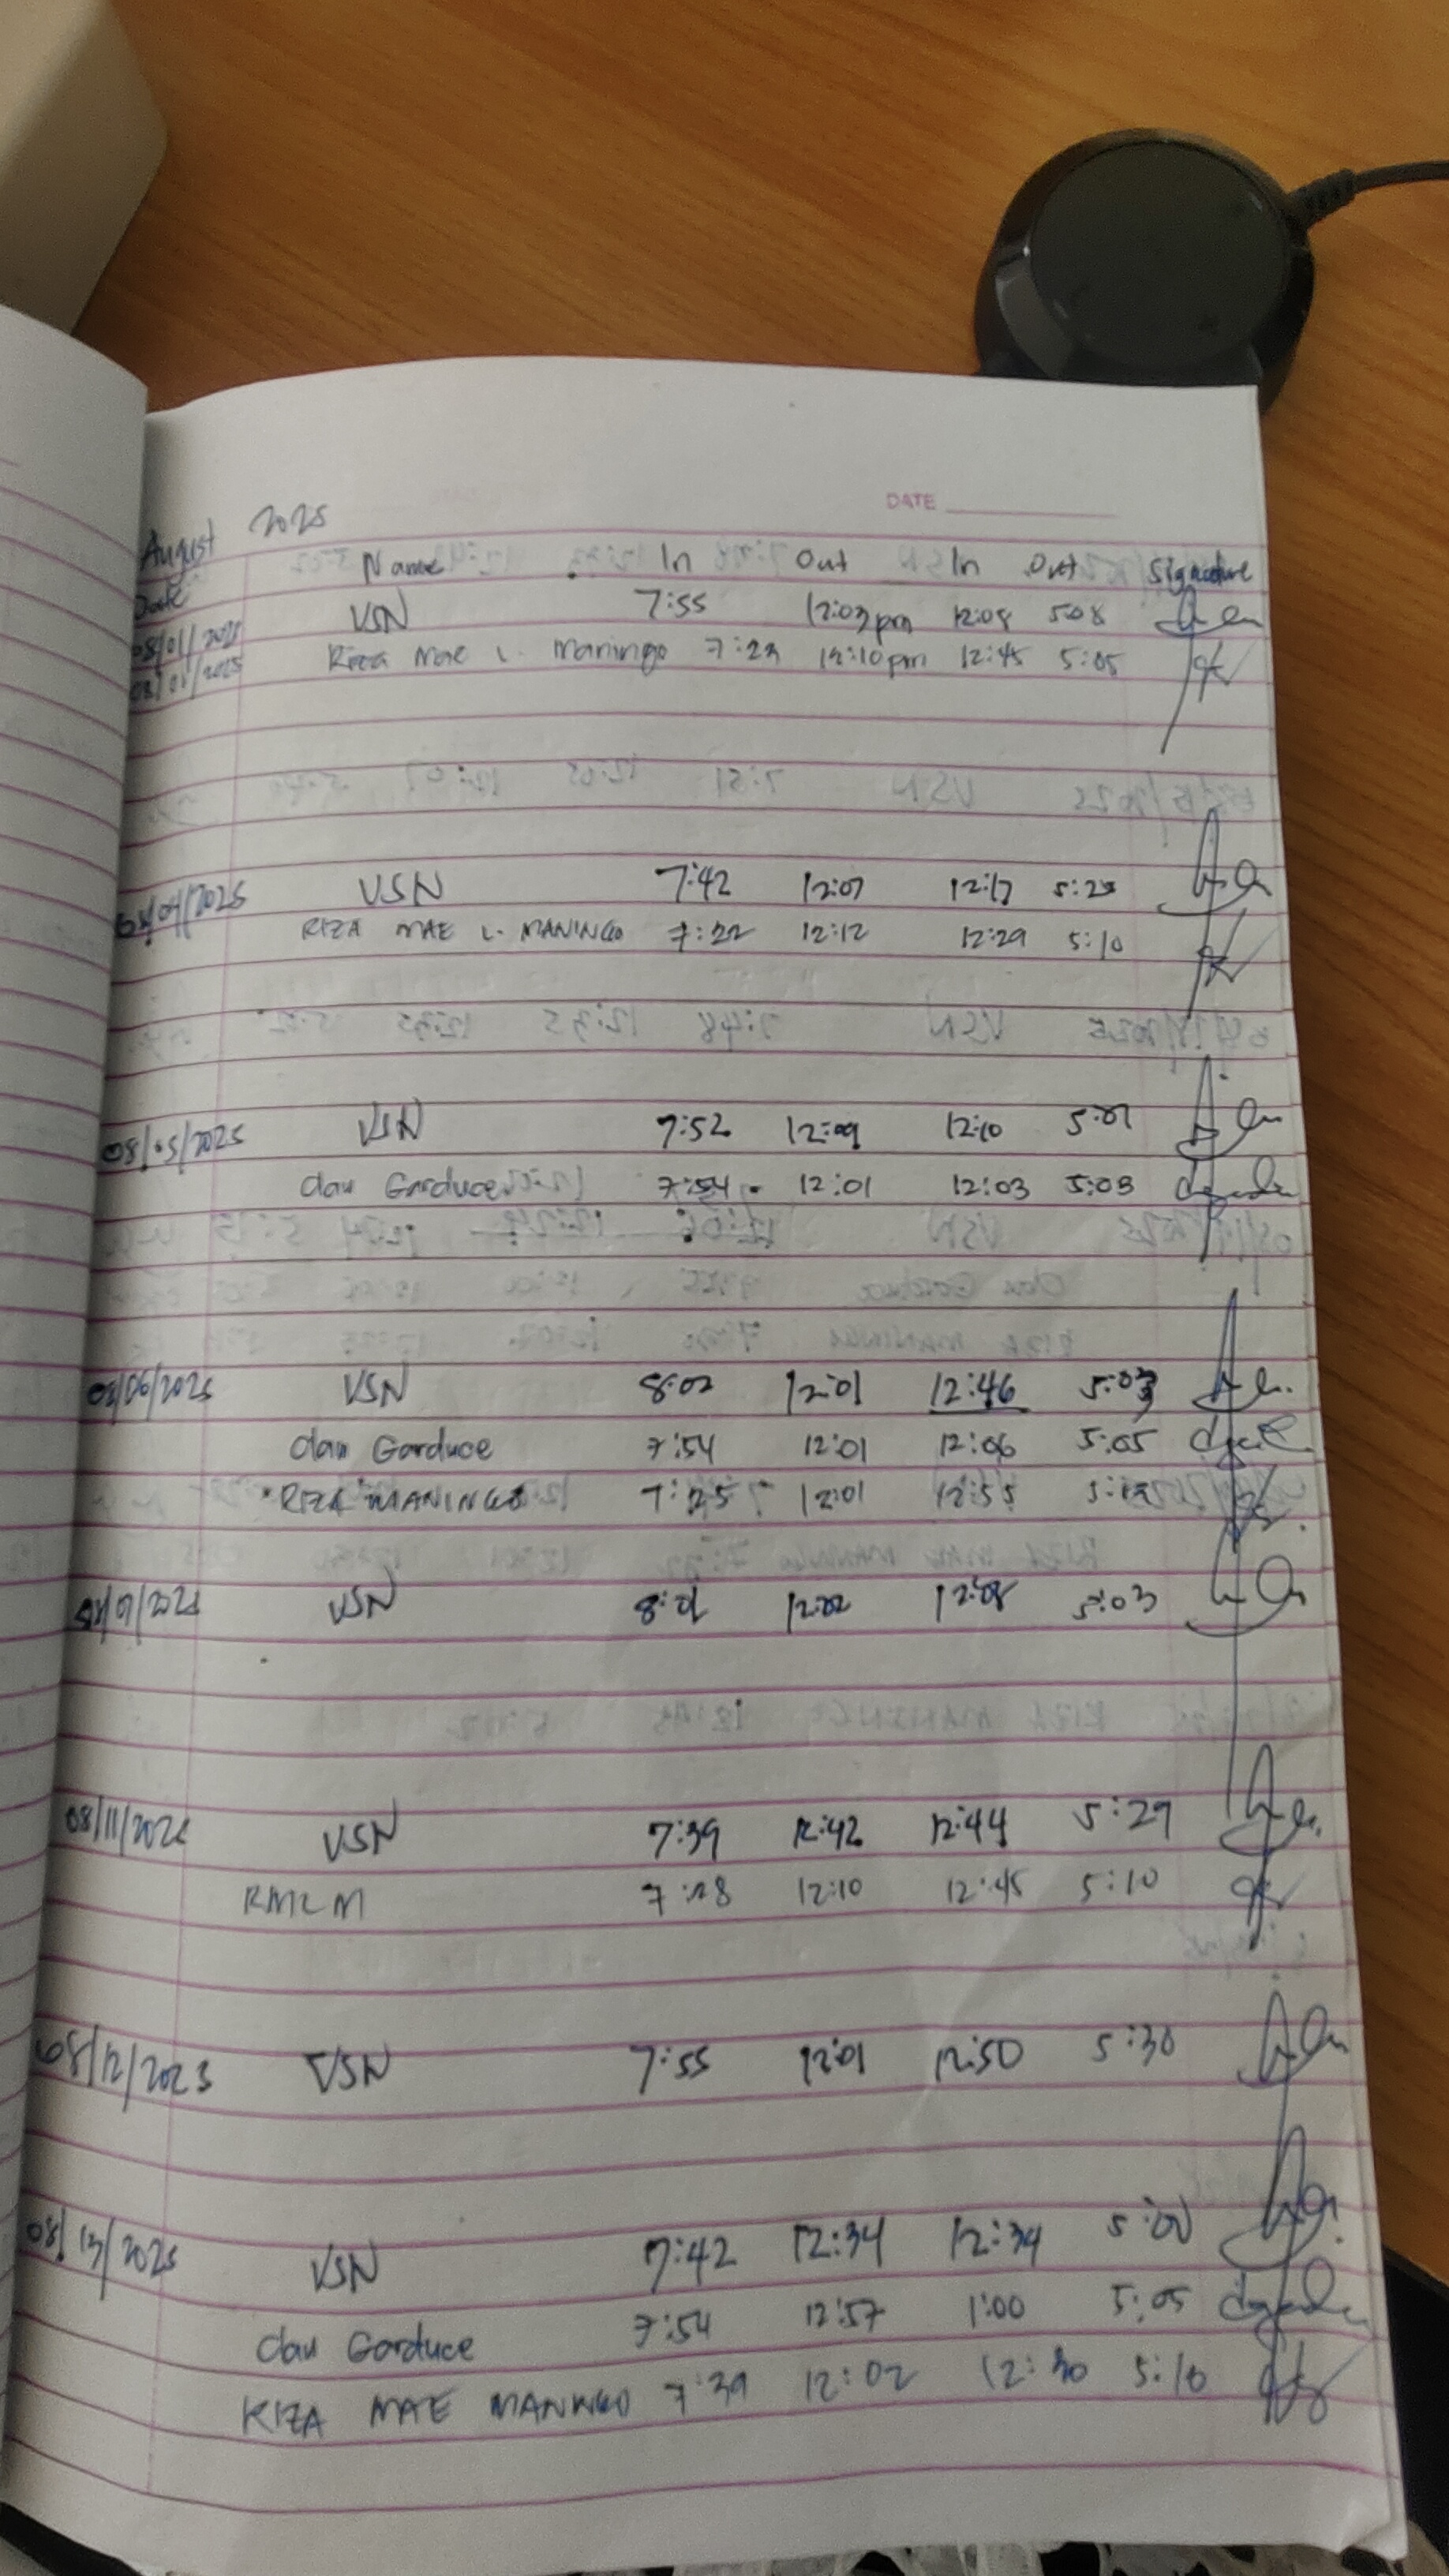 DATE
August 2025
Date Name In Out In Out Signature
08/01/2025 VSN 7:55 12:03pm 12:08 5:08
08/01/2025 Riza Mae L. Maningo 7:23 12:10pm 12:45 5:05
08/04/2025 VSN 7:42 12:07 12:17 5:25
RIZA MAE L. MANINGO 7:22 12:12 12:29 5:10
08/05/2025 VSN 7:52 12:09 12:10 5:01
dan Garduce 7:54 12:01 12:03 5:03
08/06/2025 VSN 8:02 12:01 12:46 5:03
dan Garduce 7:54 12:01 12:06 5:05
RIZA MANINGO 7:25 12:01 12:55
VSN 8:01 12:02 12:08 5:03
08/11/2025 VSN 7:39 12:42 12:44 5:29
RMLM 7:28 12:10 12:45 5:10
08/12/2025 VSN 7:55 12:01 12:50 5:30
08/13/2025 VSN 7:42 12:34 12:34 5:00
dan Garduce 7:54 12:57 1:00 5:05
RIZA MAE MANINGO 7:39 12:02 12:30 5:10